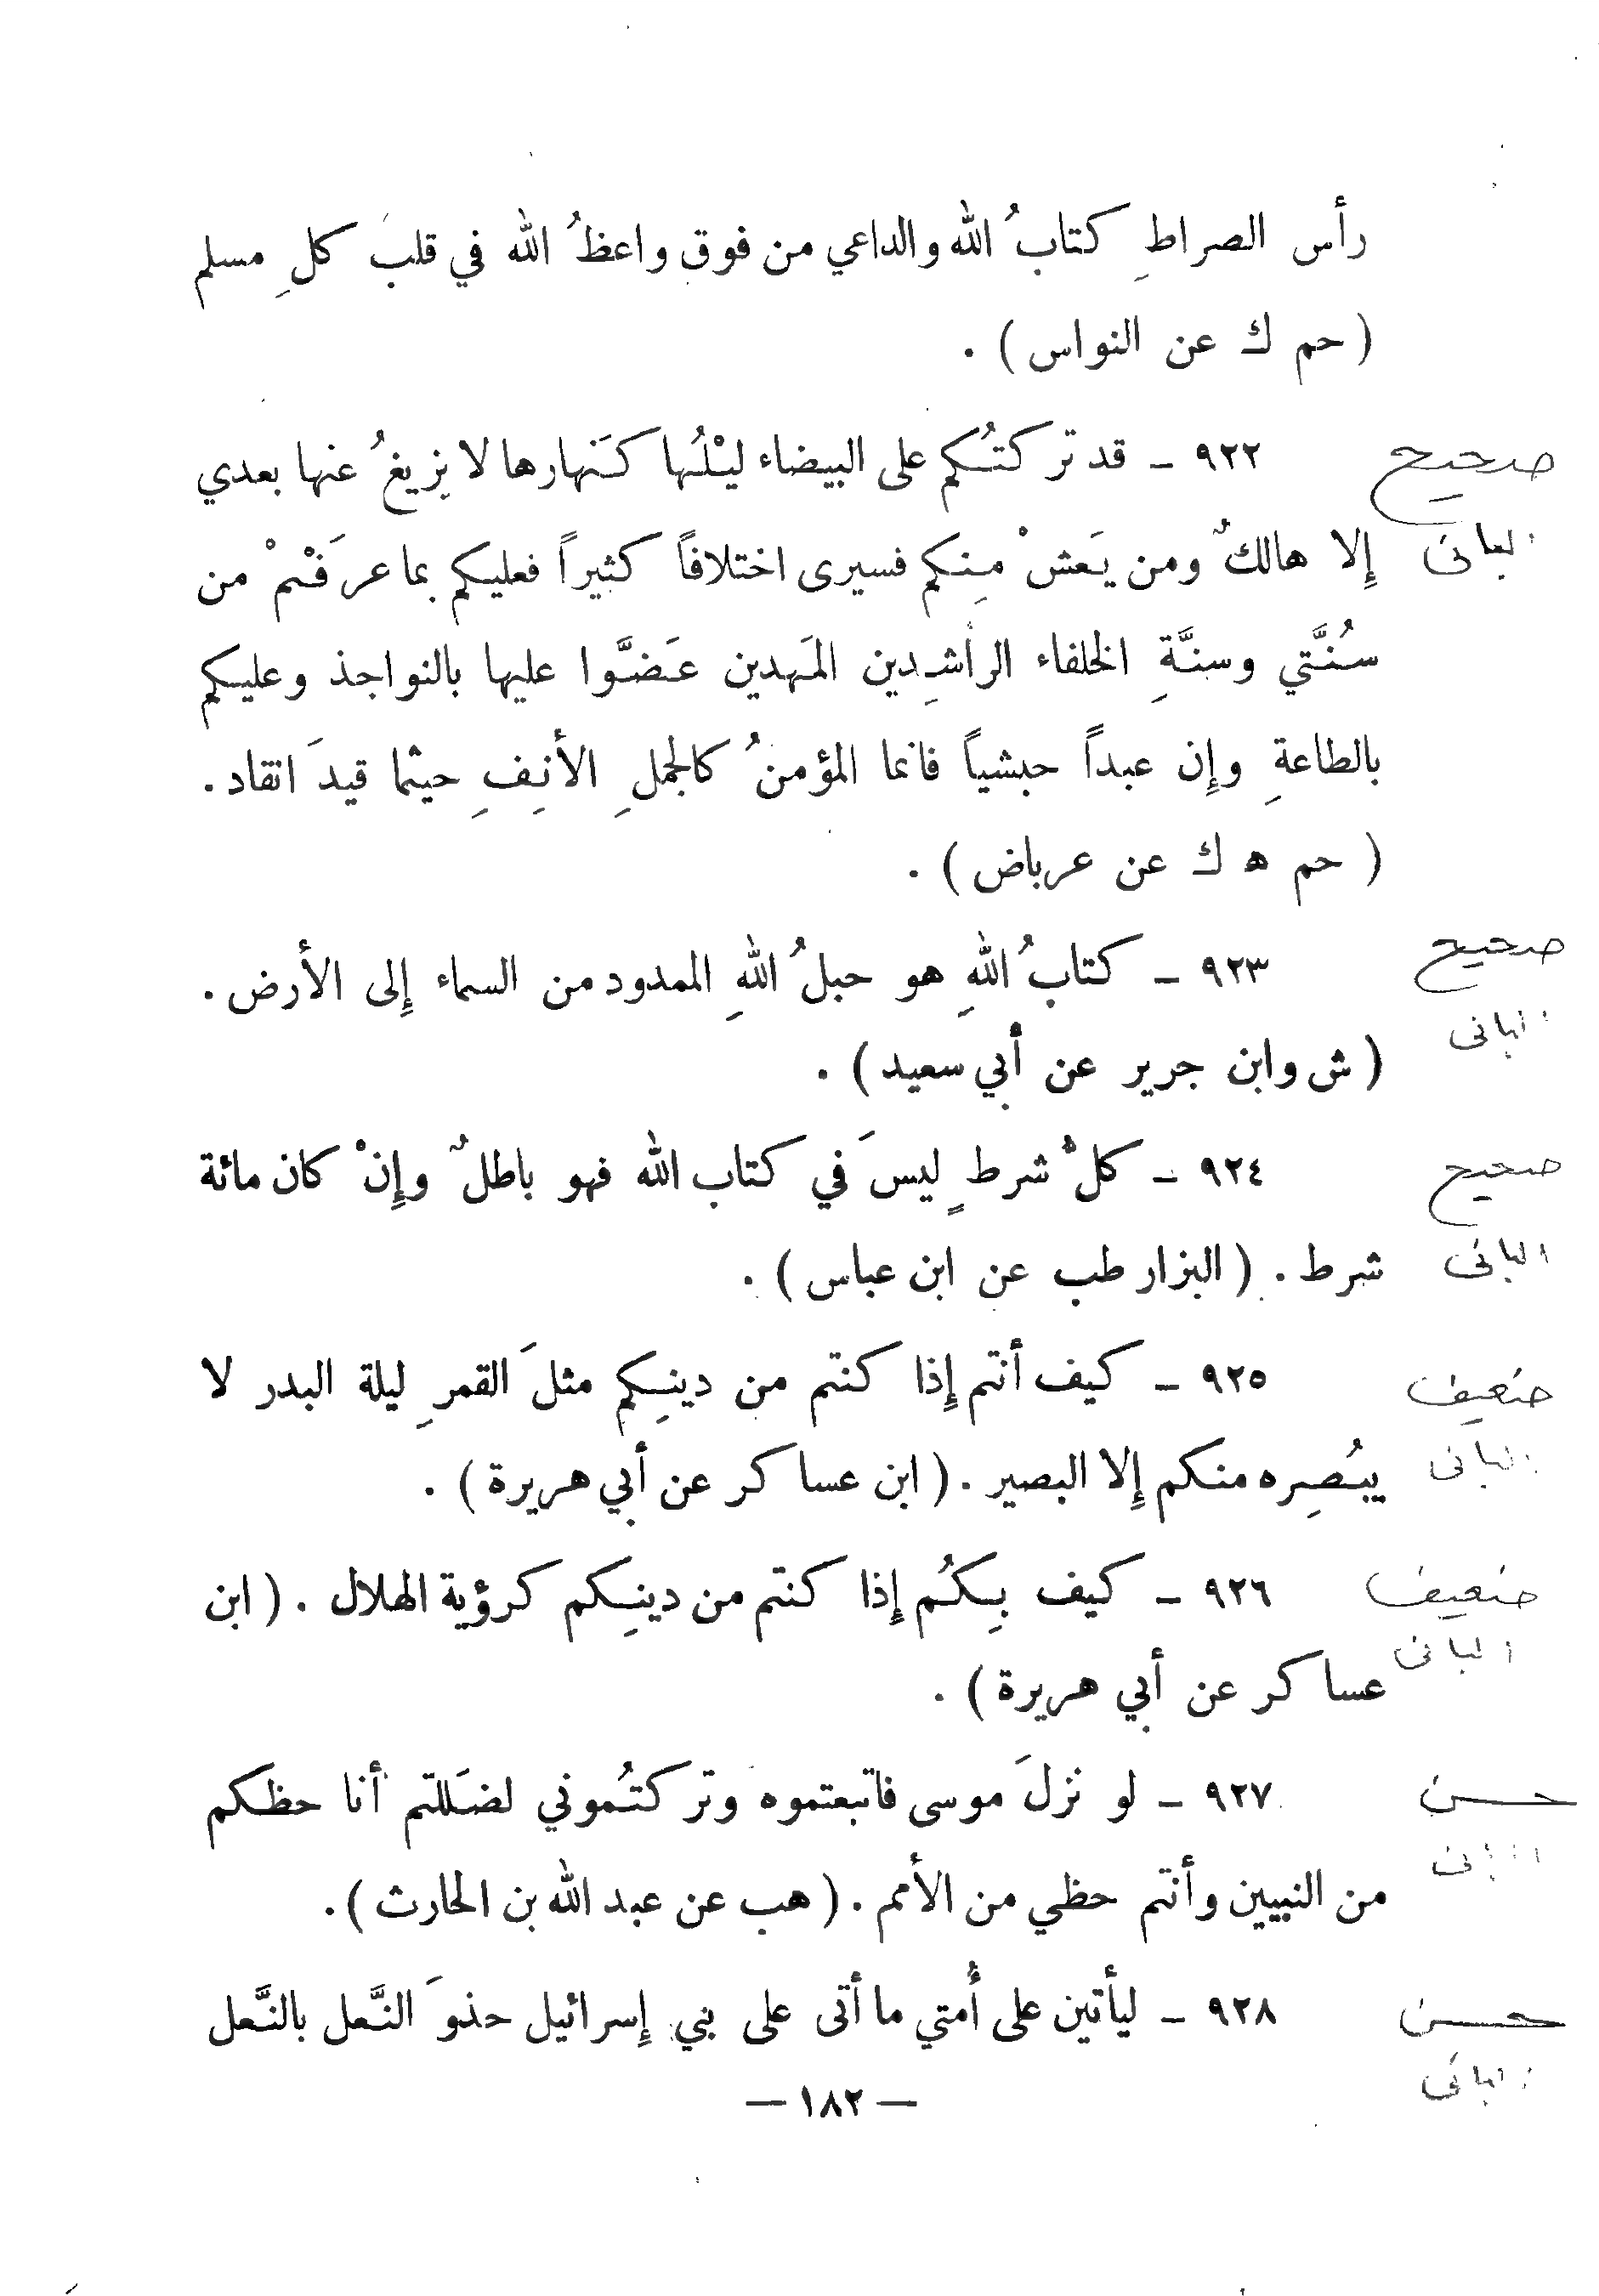 رأس الصراطِ كتابُ الله والداعي من فوق واعظُ الله في قلبَ كلِ مسلم
( حم ك عن النواس ) .
صحيح
٩٢٢ ـ قد تركتُكم على البيضاء ليْلُها كَنهارها لا يزيغُ عنها بعدي
البانى
إِلا هالكٌ ومن يَعشْ مِنكم فسيرى اختلافاً كثيراً فعليكم بما عرَفْتمْ من
سُنَّتي وسنَّةِ الخلفاء الراشِدين المَهدين عَضَّوا عليها بالنواجذ وعليكم
بالطاعةِ وإِن عبداً حبشياً فانما المؤمنُ كالجملِ الأنِفِ حيثما قيدَ انقاد .
( حم ه ك عن عرباض ) .
صحيح
٩٢٣ ـ كتابُ اللهِ هو حبلُ اللهِ الممدود من السماء إِلى الأرض .
البانى
( ش وابن جرير عن أبي سعيد ) .
صحيح
٩٢٤ ـ كلُّ شرطٍ ليسَ في كتاب الله فهو باطلٌ وإِنْ كان مائة
البانى
شرط . ( البزار طب عن ابن عباس ) .
ضعيف
٩٢٥ ـ كيف أنتم إِذا كنتم من دينِكم مثلَ القمرِ ليلة البدر لا
البانى
يبُصِره منكم إِلا البصير . ( ابن عساكر عن أبي هريرة ) .
ضعيف
٩٢٦ ـ كيف بِكُم إِذا كنتم من دينِكم كرؤية الهلال . ( ابن
البانى
عساكر عن أبي هريرة ) .
حسن
٩٢٧ ـ لو نزلَ موسى فاتبعتموه وتركتُموني لضَللتم أنا حظكم
البانى
من النبيين وأنتم حظي من الأمم . ( هب عن عبد الله بن الحارث ) .
حسن
٩٢٨ ـ ليأتين على أُمتي ما أتى على بني إِسرائيل حذوَ النَّعل بالنَّعل
البانى
— ١٨٢ —